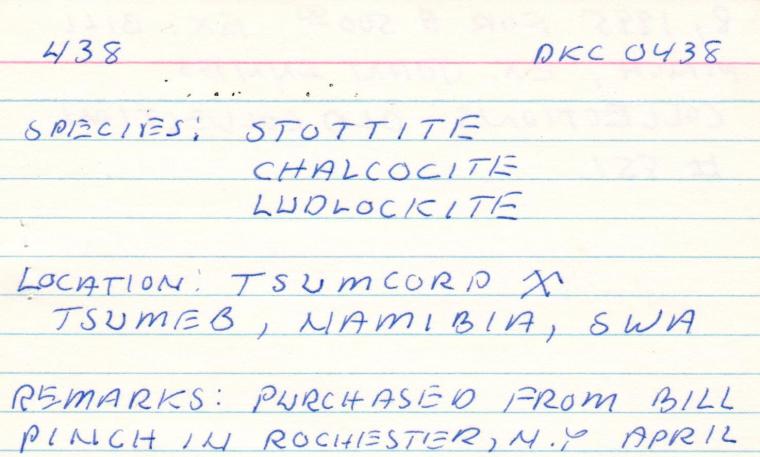 438 DKC 0438
SPECIES: STOTTITE
CHALCOCITE
LUDLOCKITE
LOCATION: TSUMCORP X
TSUMEB, NAMIBIA, SWA
REMARKS: PURCHASED FROM BILL
PINCH IN ROCHESTER, N.Y APRIL